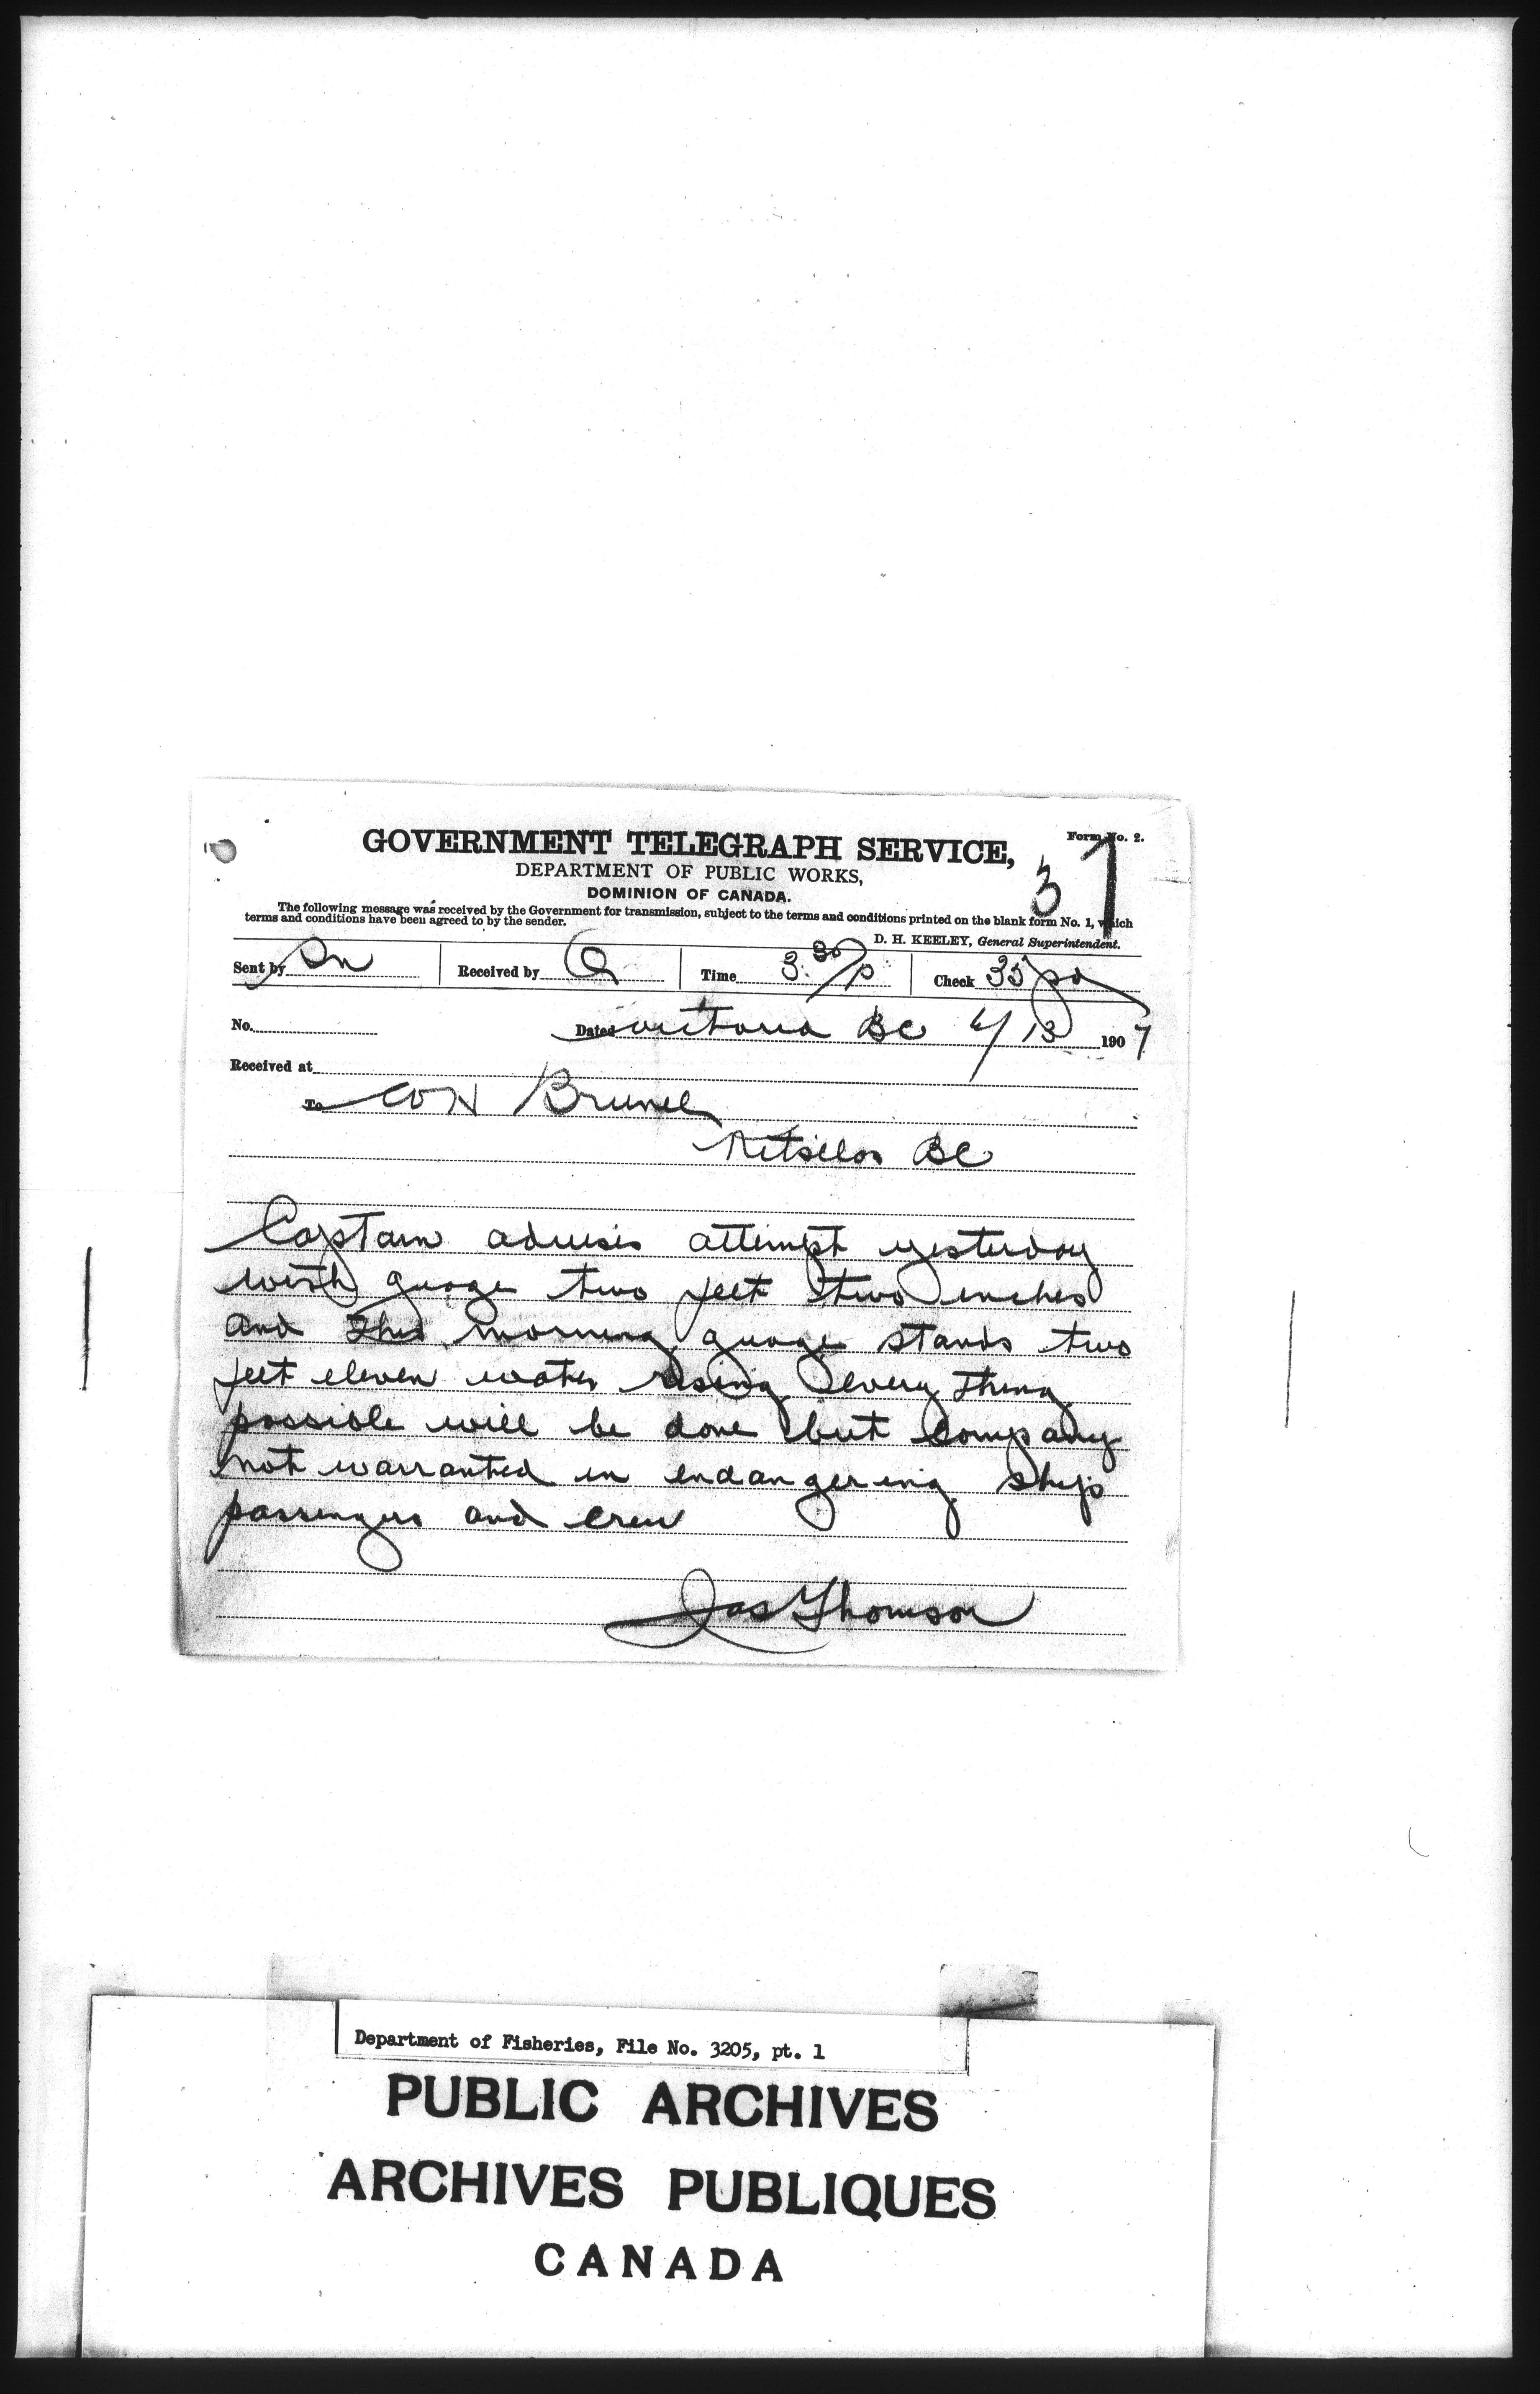 Form No. 2.
37
GOVERNMENT TELEGRAPH SERVICE,
DEPARTMENT OF PUBLIC WORKS,
DOMINION OF CANADA.
The following message was received by the Government for transmission, subject to the terms and conditions printed on the blank form No. 1, which
terms and conditions have been agreed to by the sender.
D. H. KEELEY, General Superintendent.
Sent by Dn Received by Q Time 3.30/p Check 35 pd
No. Dated Victoria BC 6/13 1907
Received at
To W H Brunel
Kitselas BC
Captain advises attempt yesterday
with guage two feet two inches
and this morning guage stands two
feet eleven water rising every thing
possible will be done but company
not warranted in endangering ship
passengers and crew
Jas Thomson
Department of Fisheries, File No. 3205, pt. 1
PUBLIC ARCHIVES
ARCHIVES PUBLIQUES
CANADA